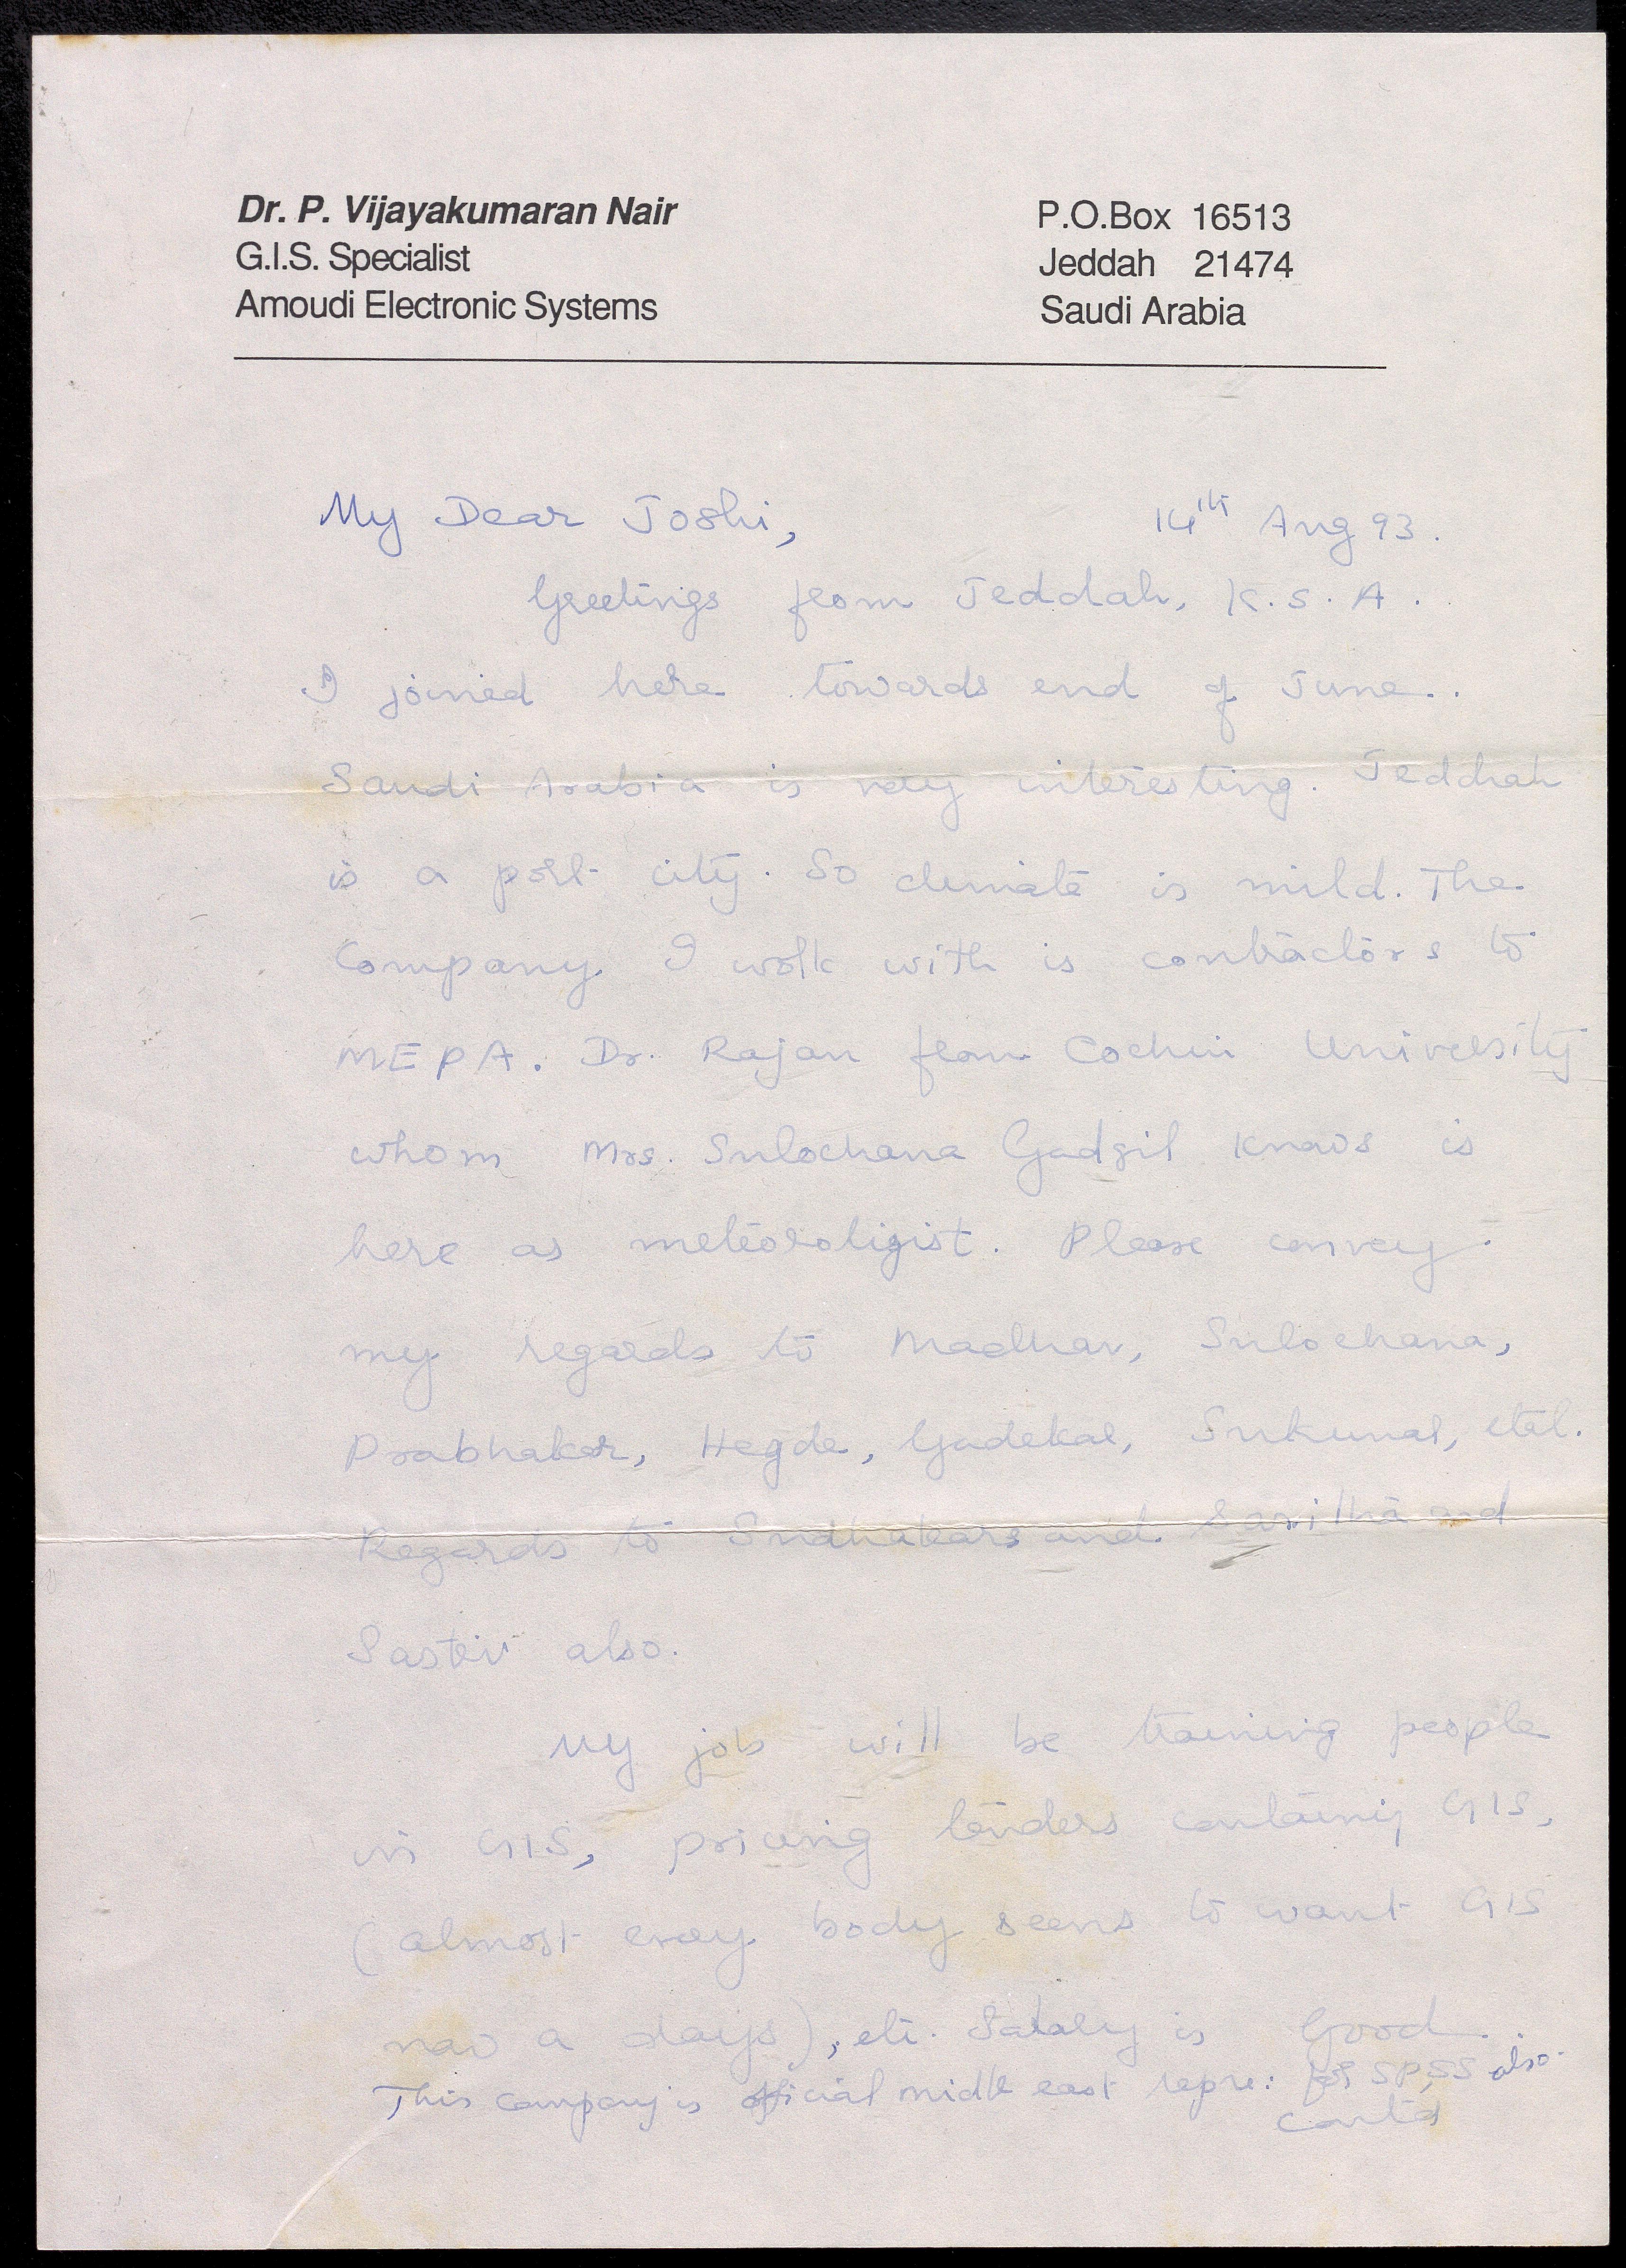 Dr. P. Vijayakumaran Nair
G.I.S. Specialist
Amoudi Electronic Systems
P.O.Box 16513
Jeddah 21474
Saudi Arabia
My Dear Joshi, 14th Aug 93.
Greetings from Jeddah, K.S.A.
I joined here towards end of June..
Saudi Arabia is very interesting. Jeddah
is a port city. So climate is mild. The
Company I work with is contractors to
MEPA. Dr. Rajan from Cochin University
whom Mrs. Sulochana Gadgil knows is
here as meteoroligist. Please convey
my regards to Madhav, Sulochana,
Prabhakar, Hegde, Gadekar, Sukumar, etal.
Regards to Sudhakars and Savitha and
Sastri also.
My job will be training people
in GIS, pricing tenders containing GIS,
(almost every body seems to want GIS
now a days), etc. Salary is Good.
This company is official middle east repre: for SPSS also.
contd